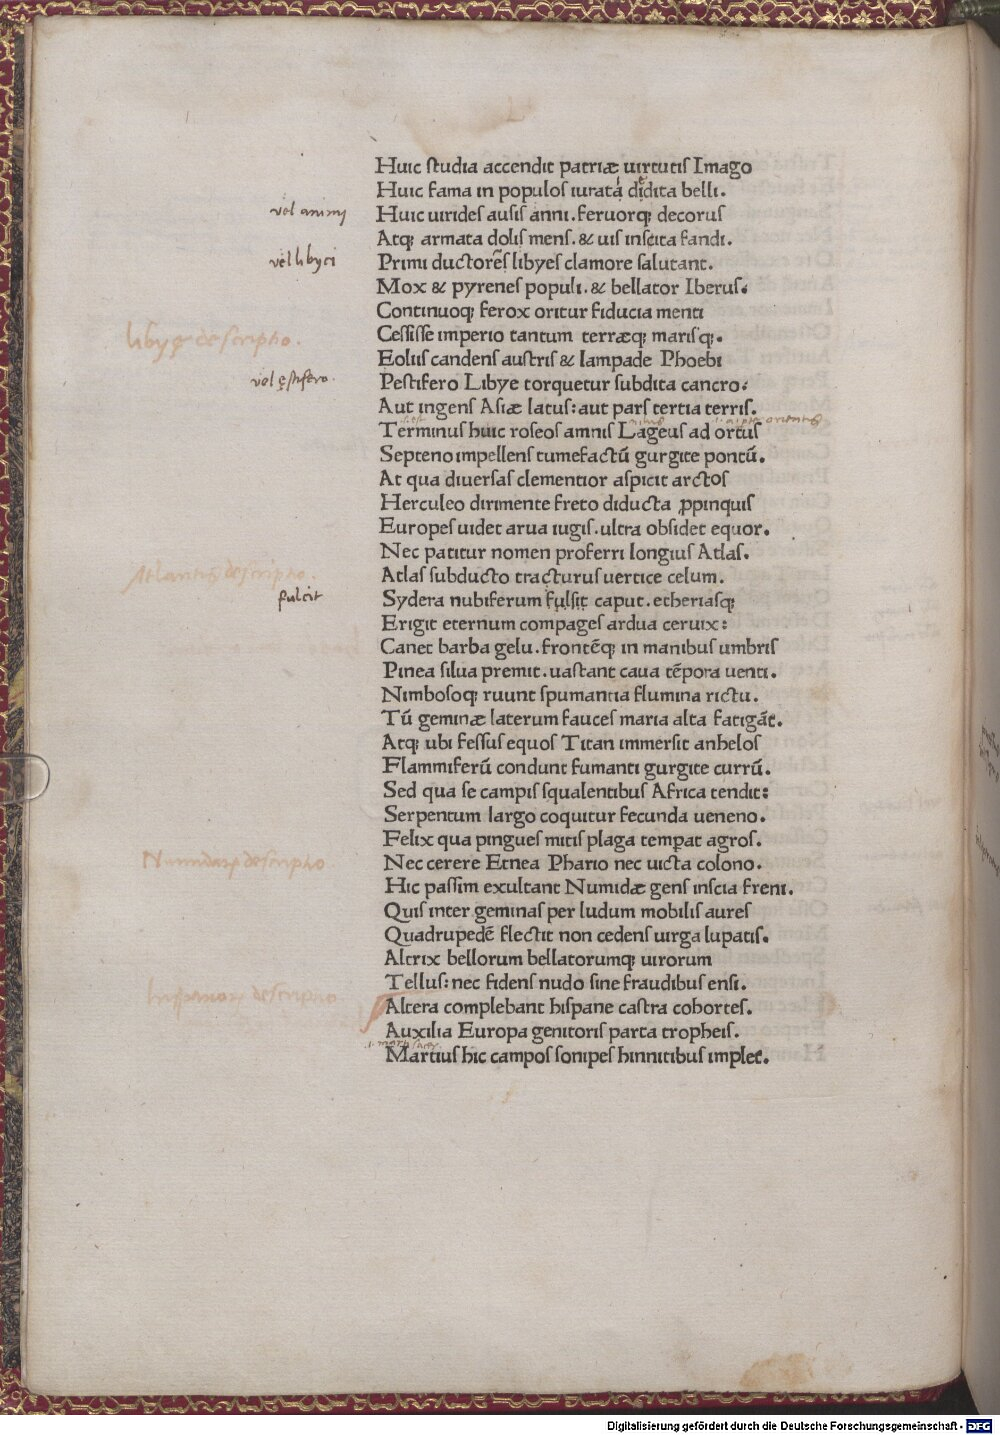 Huic ſtudia accendit patriæ uirtutis Imago
Huic fama in populoſ iurata didita belli.
vel animi
Huic uirideſ auſiſ anni. feruorq; decoruſ
Atq; armata doliſ menſ. & uiſ inſcita fandi.
vel libyci
Primi ductoreſ libyeſ clamore ſalutant.
Mox & pyreneſ populi. & bellator Iberuſ.
Continuoq; ferox oritur fiducia menti
libyę descriptio.
Ceſſiſſe imperio tantum terræq; mariſq;.
Eoliiſ candenſ auſtriſ & lampade Phoebi
vel ęstifero.
Peſtifero Libye torquetur ſubdita cancro:
Aut ingenſ Aſiæ latuſ: aut parſ tertia terriſ.
Terminuſ huic roſeoſ amniſ Lageuſ ad ortuſ
Septeno impellenſ tumefactū gurgite pontū.
At qua diuerſaſ clementior aſpicit arctoſ
Herculeo dirimente freto diducta ꝓpinquiſ
Europeſ uidet arua iugiſ. ultra obſidet equor.
Nec patitur nomen proferri longiuſ Atlaſ.
Atlantis descriptio.
Atlaſ ſubducto tracturuſ uertice celum.
fulcit
Sydera nubiferum fulſit caput. etheriaſq;
Erigit eternum compageſ ardua ceruix:
Canet barba gelu. frontēq; in manibuſ umbriſ
Pinea ſilua premit. uaſtant caua tēpora uenti.
Nimboſoq; ruunt ſpumantia flumina rictu.
Tū geminæ laterum fauceſ maria alta fatigāt.
Atq; ubi feſſuſ equoſ Titan immerſit anheloſ
Flammiferū condunt fumanti gurgite currū.
Sed qua ſe campiſ ſqualentibuſ Africa tendit:
Serpentum largo coquitur fecunda ueneno.
Felix qua pingueſ mitiſ plaga tempat agroſ.
Numidarum descriptio
Nec cerere Etnea Phario nec uicta colono.
Hic paſſim exultant Numidæ genſ inſcia freni.
Quiſ inter geminaſ per ludum mobiliſ aureſ
Quadrupedē flectit non cedenſ uirga lupatiſ.
Altrix bellorum bellatorumq; uirorum
Telluſ: nec fidenſ nudo ſine fraudibuſ enſi.
hispanorum descriptio
Altera complebant hiſpane caſtra cohorteſ.
Auxilia Europa genitoriſ parta tropheiſ.
Martiuſ hic campoſ ſonipeſ hinnitibuſ implet.
Digitalisierung gefördert durch die Deutsche Forschungsgemeinschaft - DFG